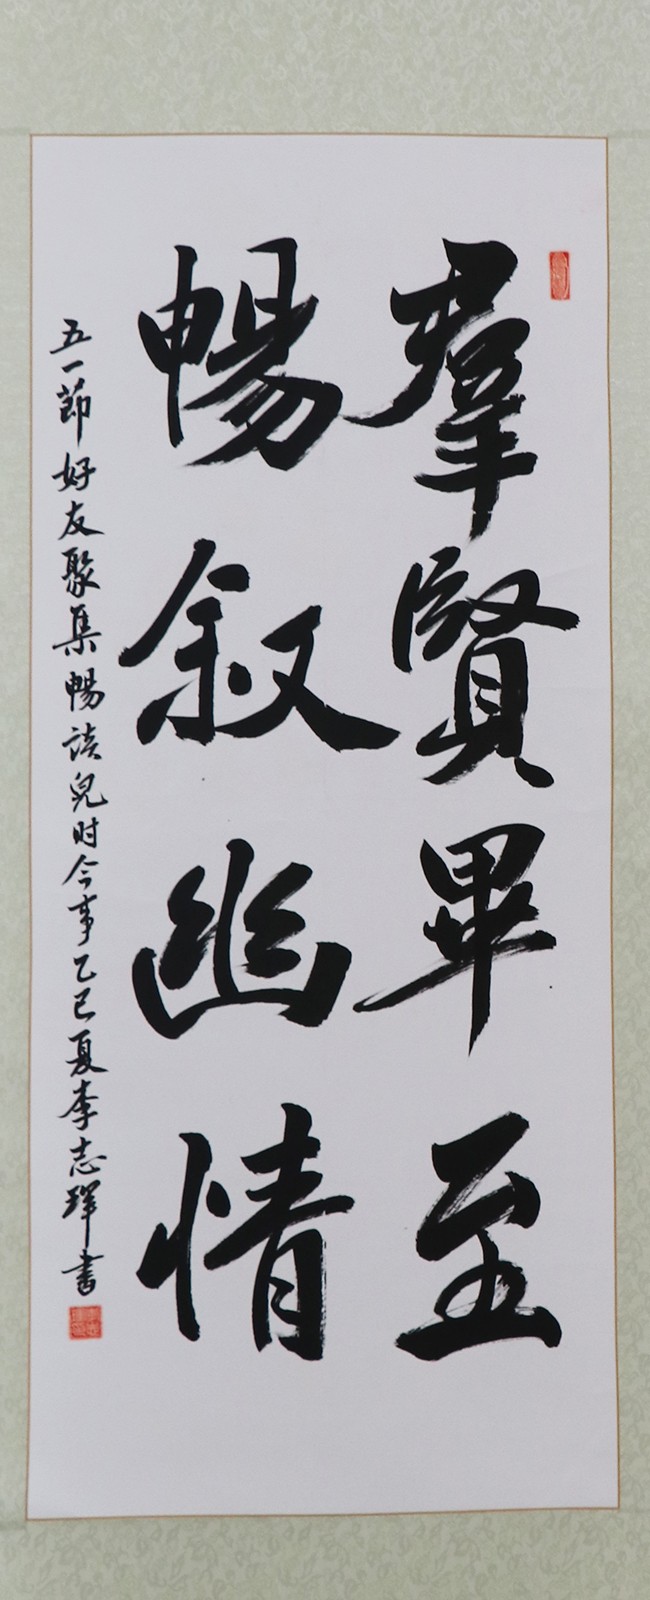 羣賢畢至
暢叙幽情
五一節好友聚集暢談兒时今事乙巳夏李志琿書